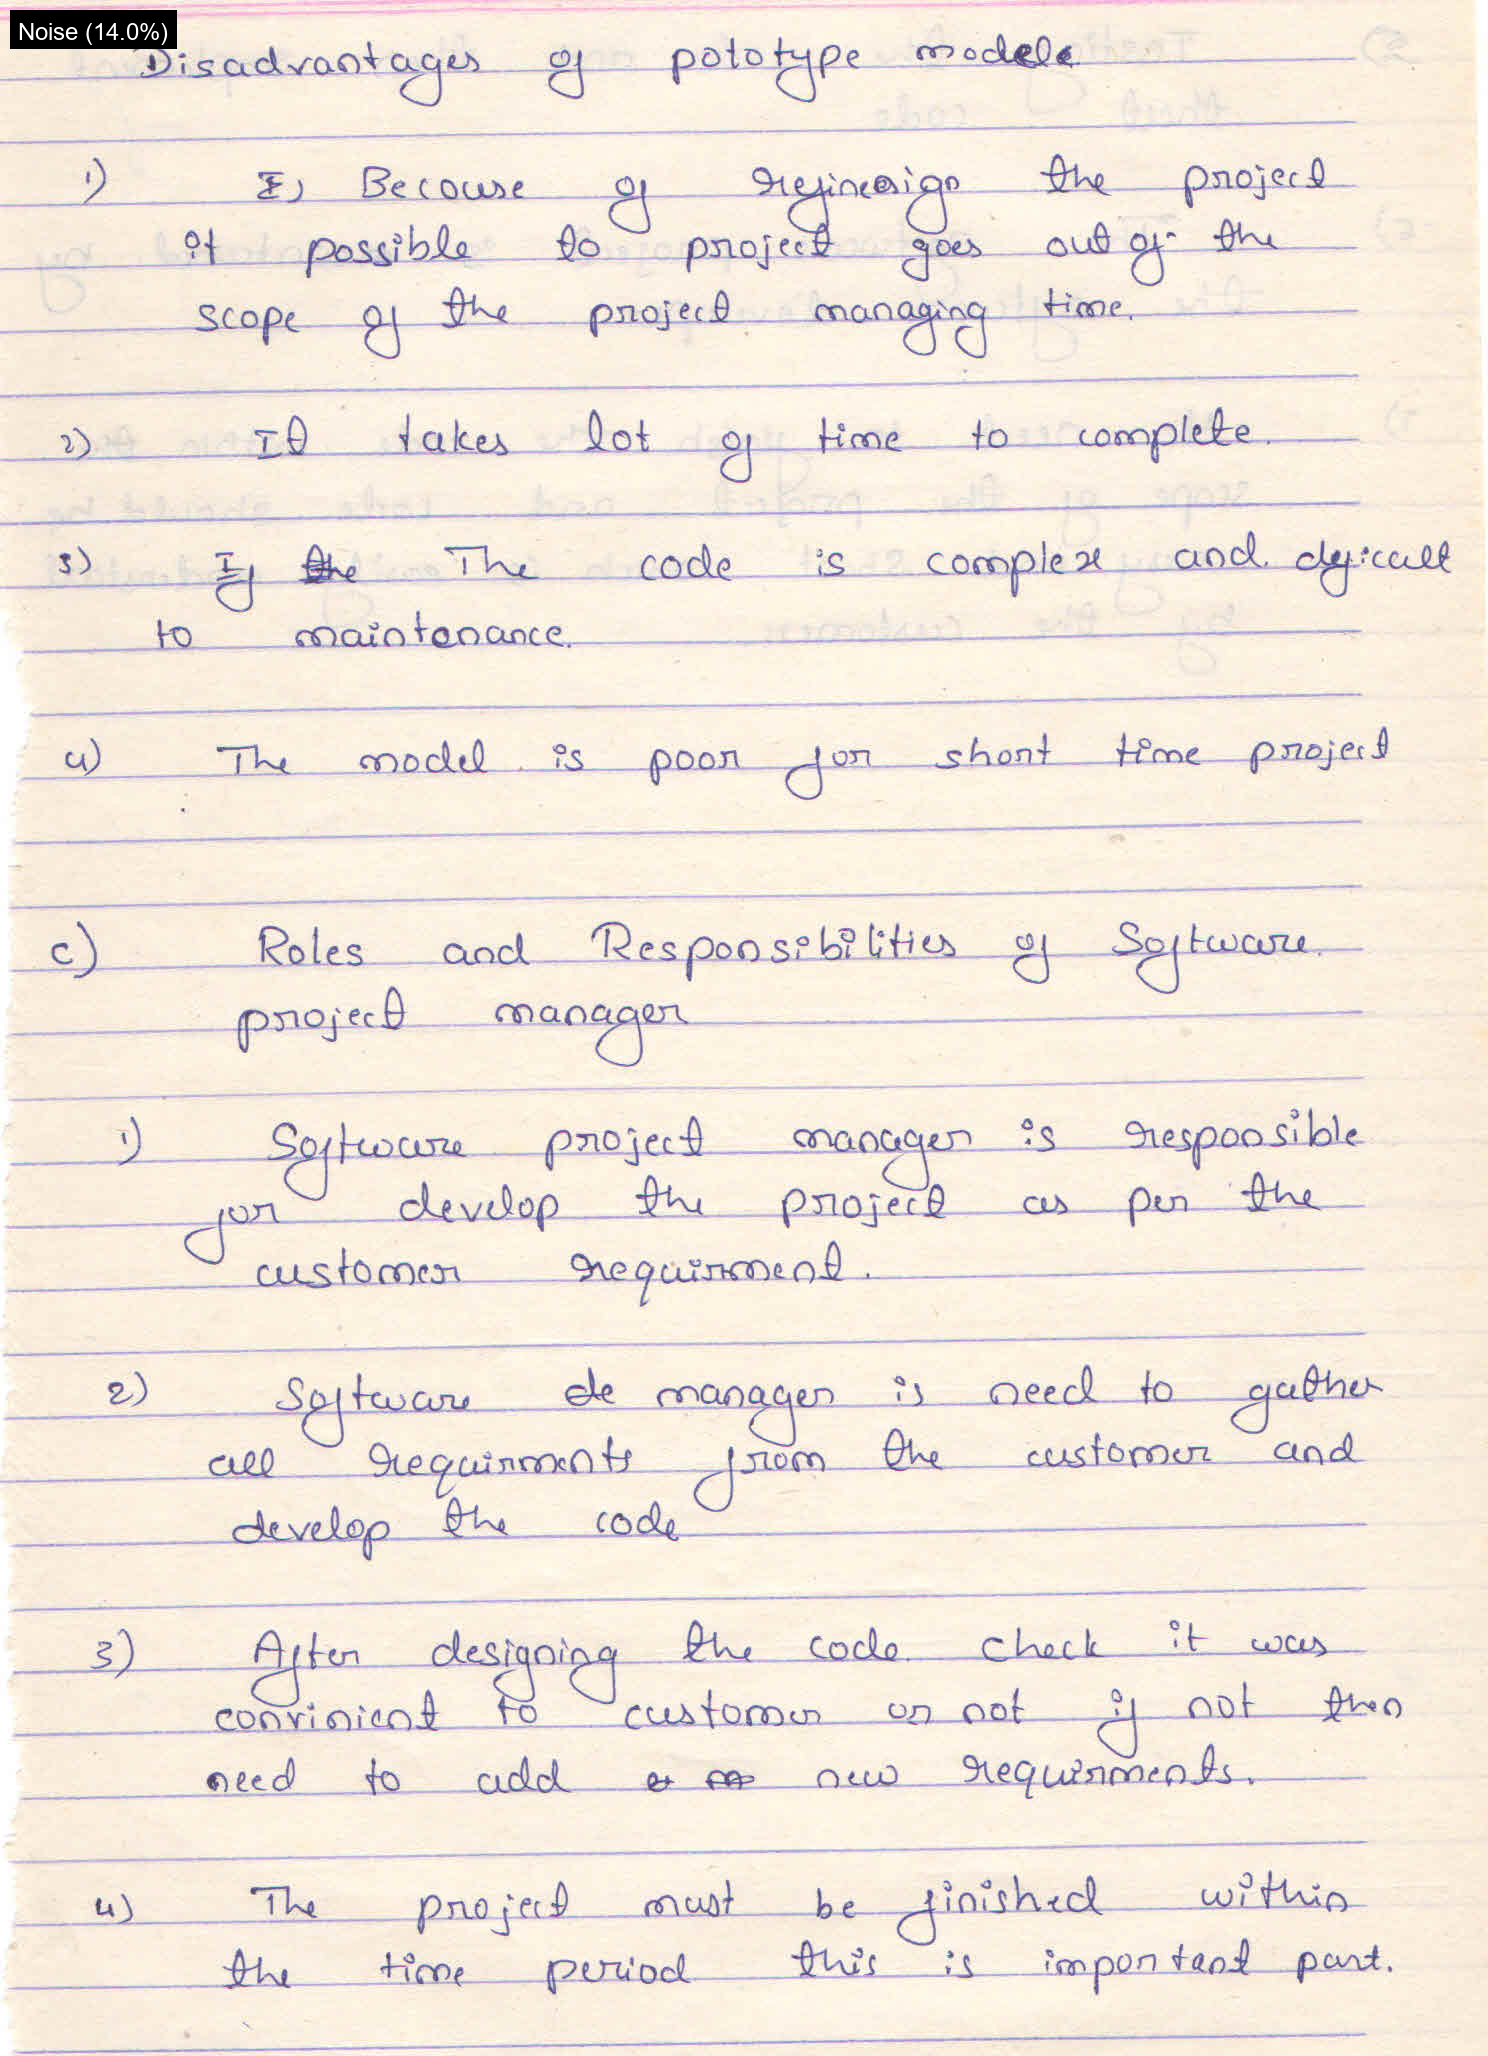 Noise (14.0%)
Disadvantages of pototype modele
1) Becouse of the project
it possible to project goes out of the
scope of the project managing time.
2) It takes lot of time to complete.
3) If the The code is complex and. dificult
to maintenance.
4) The model is poor for short time project
c) Roles and Responsibilities of Software.
project manager
1) Software project manager is responsible
for develop the project as per the
customer requirment.
2) Software de manager is need to gather
all requirments from the customer and
develop the code
3) After designing the code. check it was
convinient to customer or not if not then
need to add new requirments.
4) The project must be finished within
the time period this is important part.